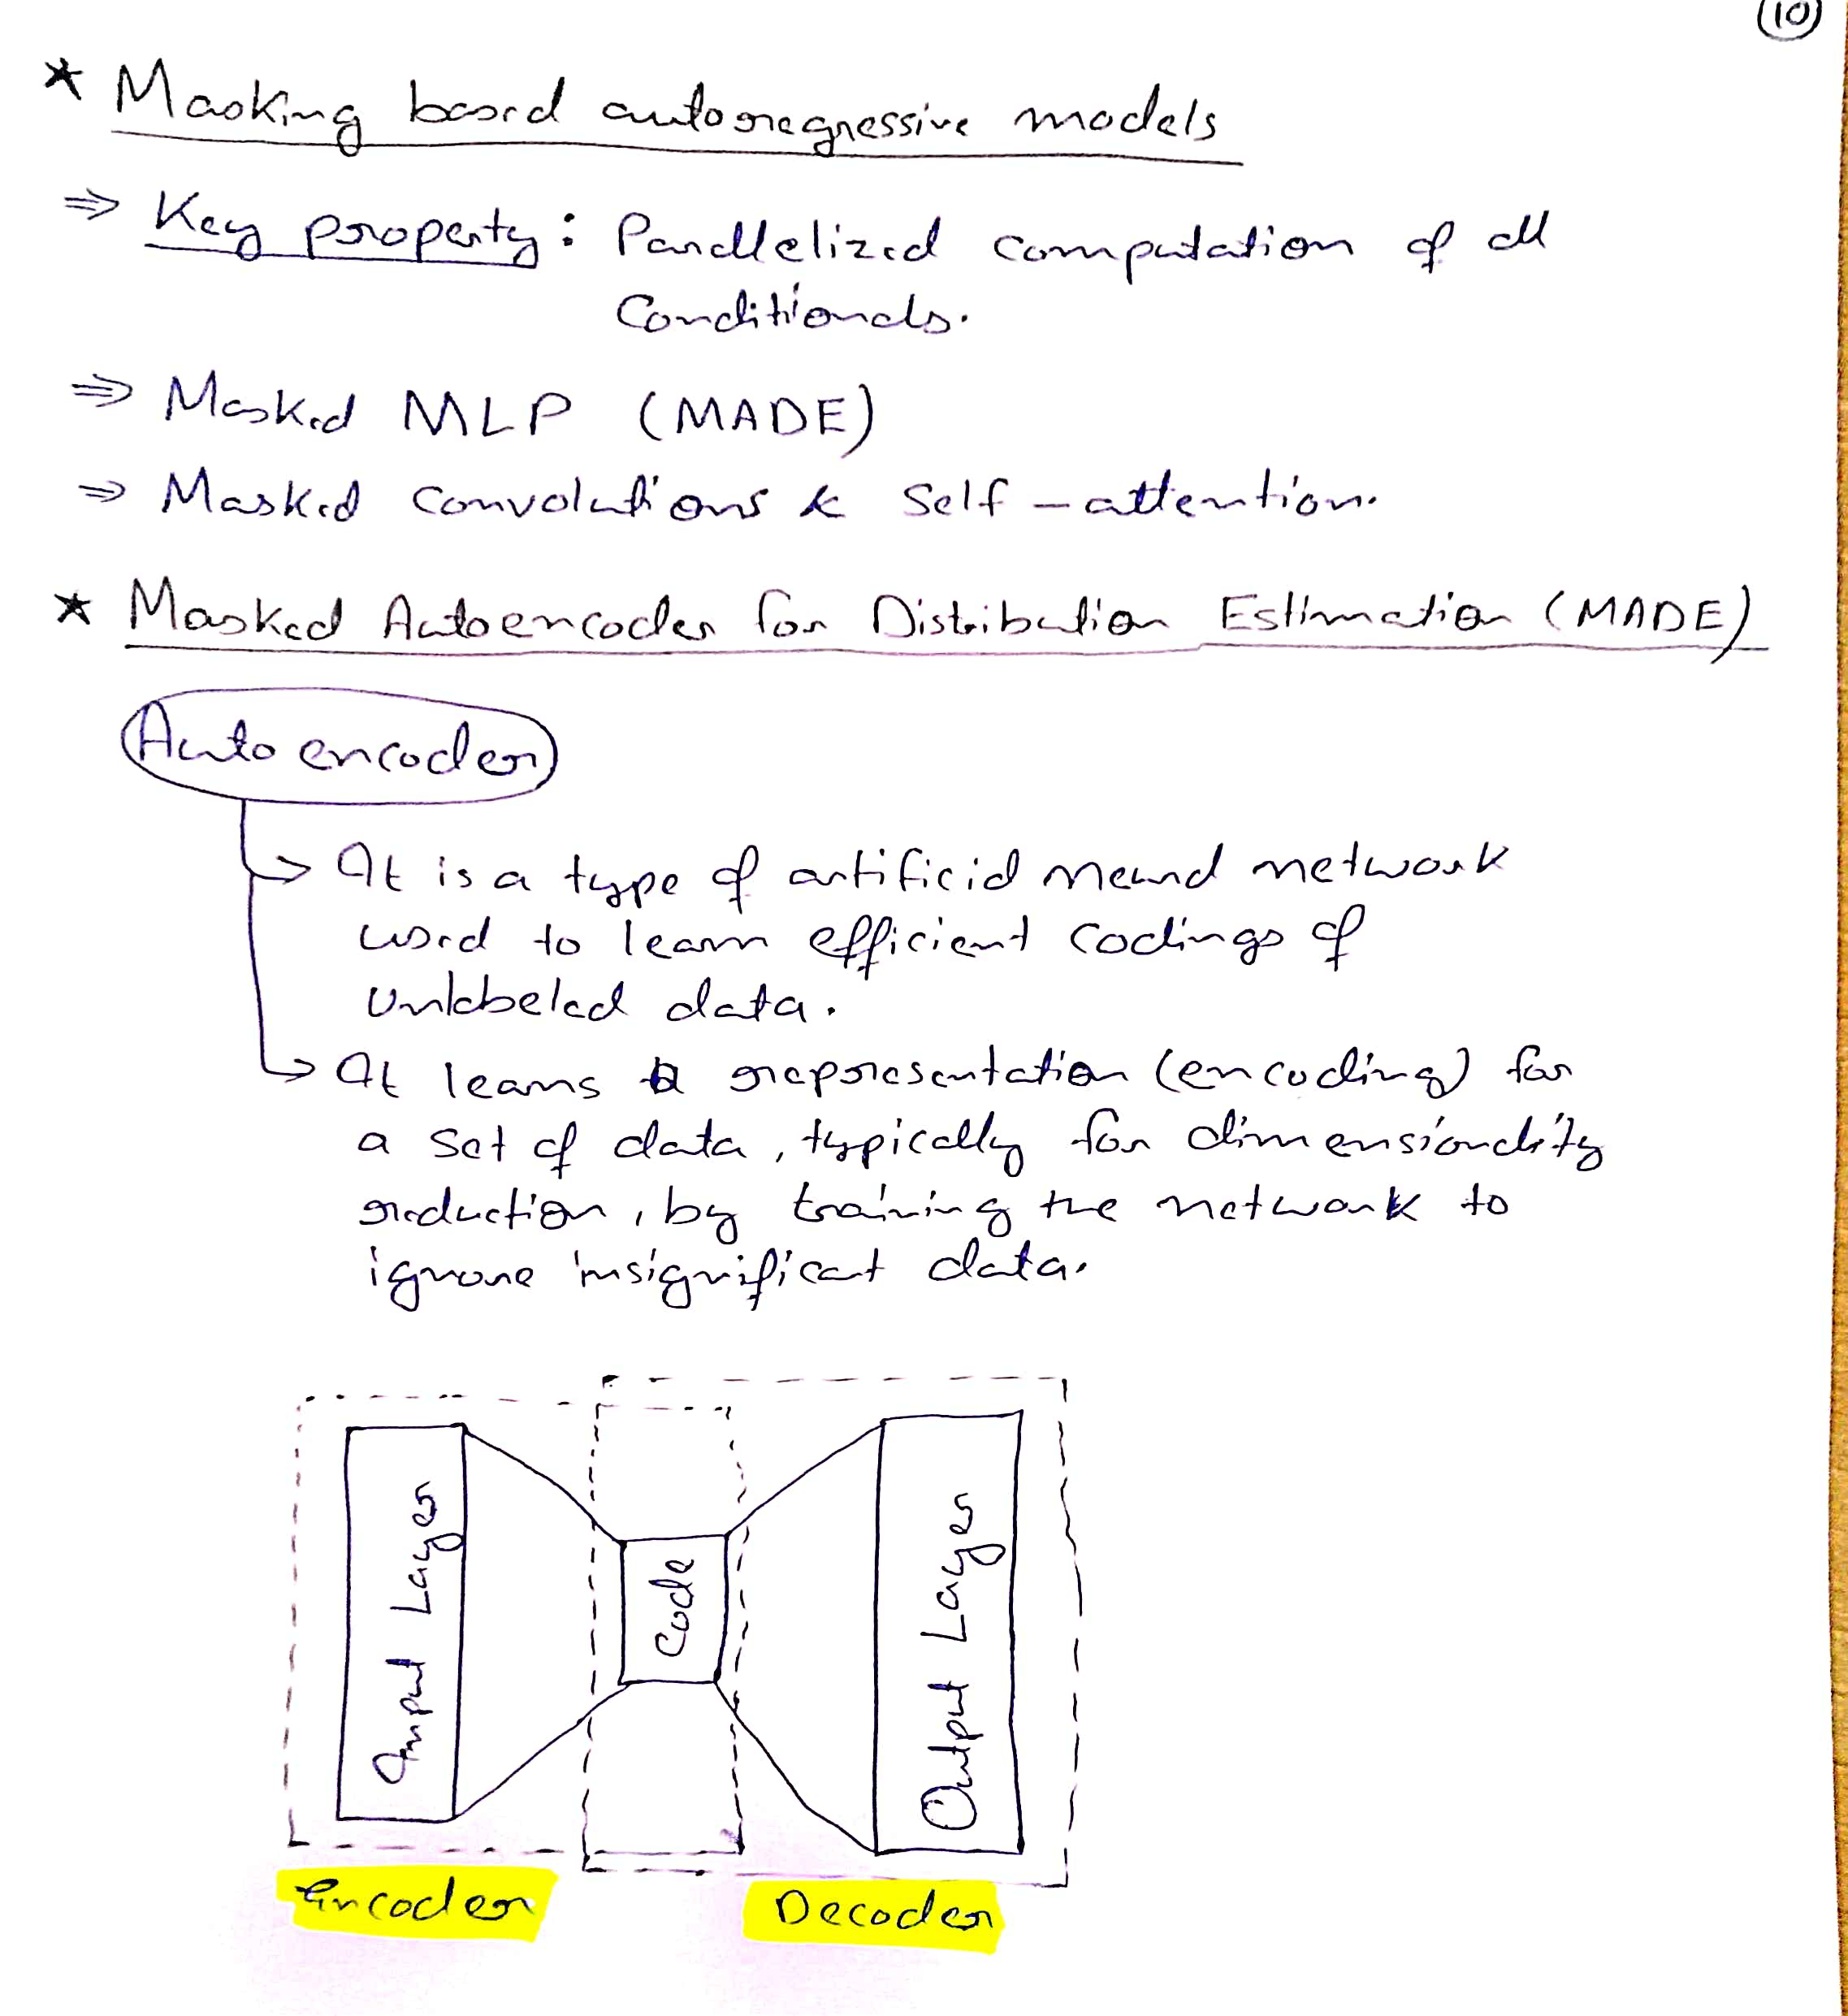 (10)
* Masking based autoregressive models
⇒ Key property : Parallelized computation of all
Conditionals.
⇒ Masked MLP (MADE)
⇒ Masked convolutions & self-attention.
* Masked Autoencoder for Distribution Estimation (MADE)
Autoencoder
↳ It is a type of artificial neural network
used to learn efficient codings of
unlabeled data.
↳ It learns a representation (encoding) for
a set of data, typically for dimensionality
reduction, by training the network to
ignore insignificant data.
Input Layer
Code
Output Layer
Encoder
Decoder